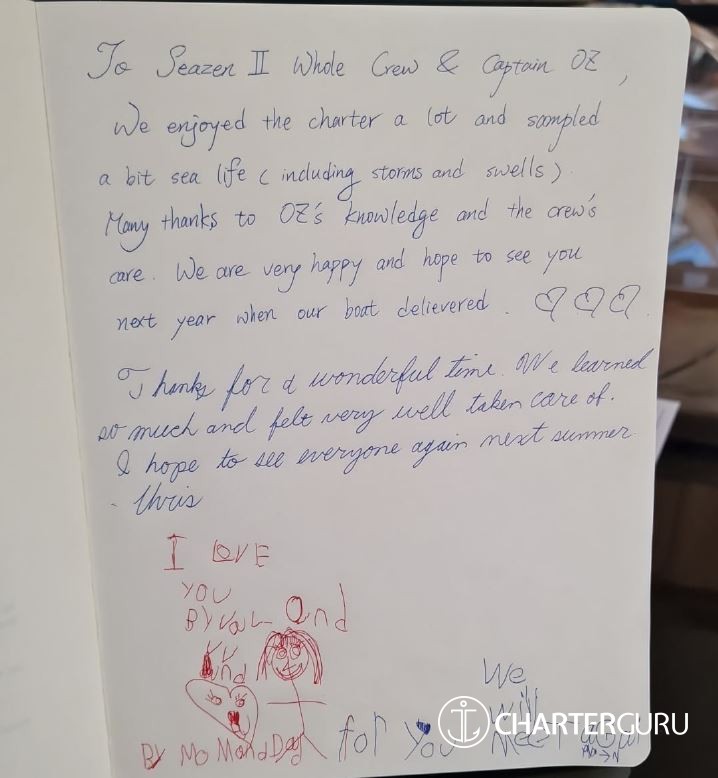 To Seazen II Whole Crew & Captain OZ,
We enjoyed the charter a lot and soompled
a bit sea life (including storms and swells).
Many thanks to OZ's knowledge and the crew's
care. We are very happy and hope to see you
next year when our boat delievered. ♡♡♡.
Thanks for a wonderful time. We learned
so much and felt very well taken care of.
I hope to see everyone again next summer
- Chris
I LOVE
YOU
BY and
and
By Mo Mand Dad for You
We
will
Meet
CHARTERGURU